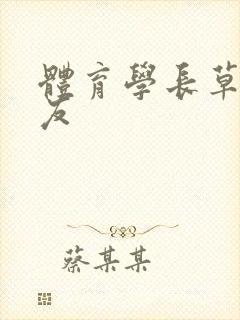 體育學長草
友
蔡某某